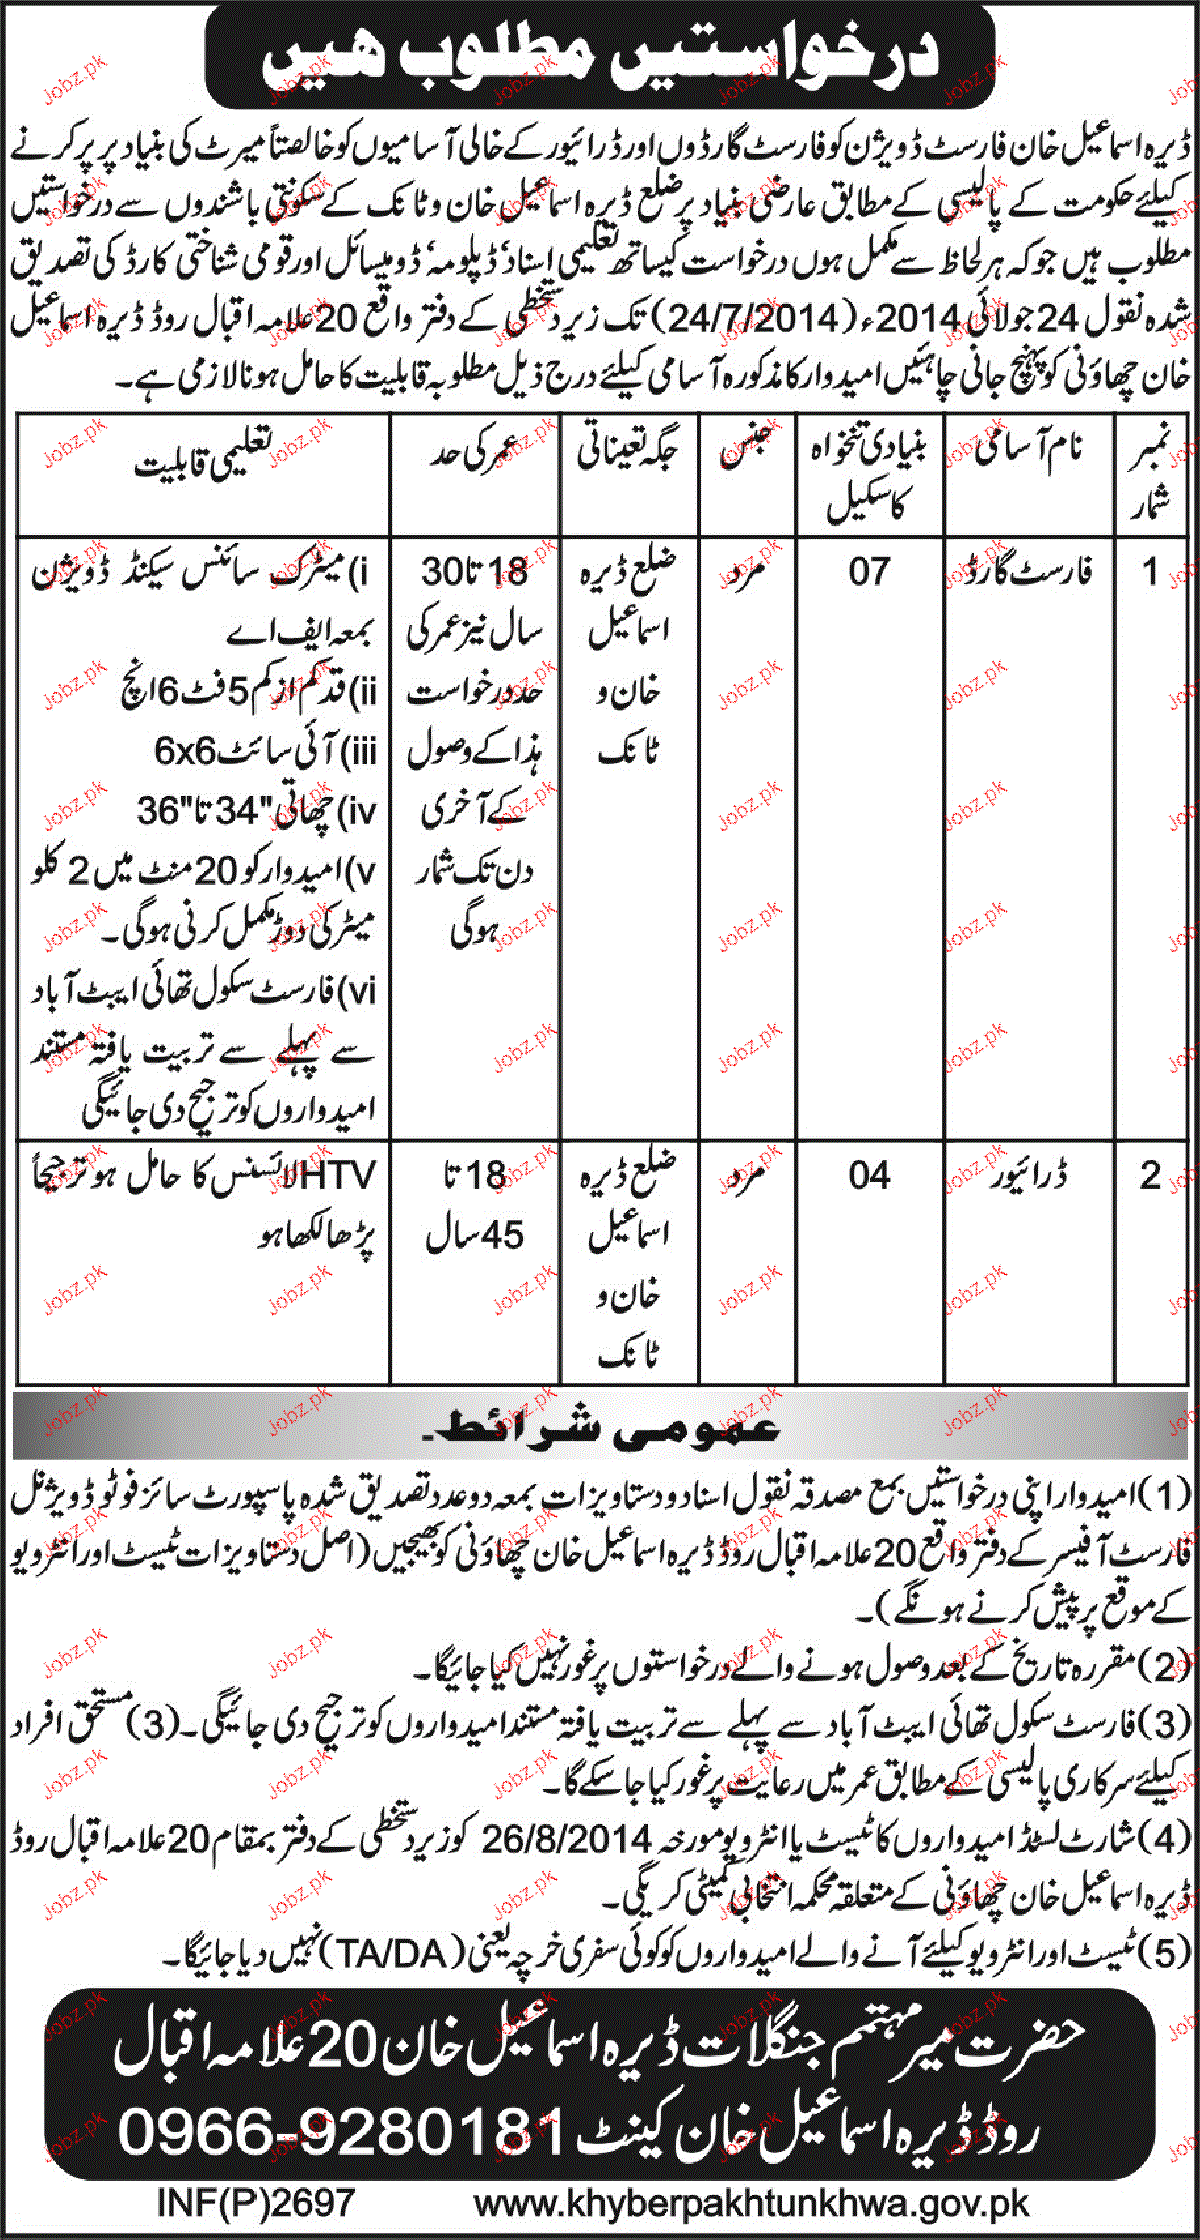 درخواستیں مطلوب ھیں
ڈیرہ اسماعیل خان فارسٹ ڈویژن کو فارسٹ گارڈوں اور ڈرائیور کے خالی آسامیوں کو خالصتاً میرٹ کی بنیاد پر پر کرنے
کیلئے حکومت کے پالیسی کے مطابق عارضی بنیاد پر ضلع ڈیرہ اسماعیل خان و ٹانک کے سکونتی باشندوں سے درخواستیں
مطلوب ہیں جو کہ ہر لحاظ سے مکمل ہوں درخواست کیساتھ تعلیمی اسناد، ڈپلومہ، ڈومیسائل اور قومی شناختی کارڈ کی تصدیق
شدہ نقول 24 جولائی 2014ء (24/7/2014) تک زیر دستخطی کے دفتر واقع 20 علامہ اقبال روڈ ڈیرہ اسماعیل
خان چھاؤنی کو پہنچ جانی چاہئیں امیدوار کا مذکورہ آسامی کیلئے درج ذیل مطلوبہ قابلیت کا حامل ہونا لازمی ہے۔
نمبر شمار
نام آسامی
بنیادی تنخواہ کا سکیل
جنس
جگہ تعیناتی
عمر کی حد
تعلیمی قابلیت
1
فارسٹ گارڈ
07
مرد
ضلع ڈیرہ
اسماعیل
خان و
ٹانک
18 تا 30
سال نیز عمر کی
حد درخواست
ہذا کے وصول
کے آخری
دن تک شمار
ہوگی
i) میٹرک سائنس سیکنڈ ڈویژن
بمعہ ایف اے
ii) قد کم از کم 5 فٹ 6 انچ
iii) آئی سائٹ 6x6
iv) چھاتی "34 تا "36
v) امیدوار کو 20 منٹ میں 2 کلو
میٹر کی دوڑ مکمل کرنی ہوگی۔
vi) فارسٹ سکول تھائی ایبٹ آباد
سے پہلے سے تربیت یافتہ مستند
امیدواروں کو ترجیح دی جائیگی
2
ڈرائیور
04
مرد
ضلع ڈیرہ
اسماعیل
خان و
ٹانک
18 تا
45 سال
HTV لائسنس کا حامل ہو ترجیحاً
پڑھا لکھا ہو
عمومی شرائط۔
(1) امیدوار اپنی درخواستیں بمع مصدقہ نقول اسناد و دستاویزات بمعہ دو عدد تصدیق شدہ پاسپورٹ سائز فوٹو ڈویژنل
فارسٹ آفیسر کے دفتر واقع 20 علامہ اقبال روڈ ڈیرہ اسماعیل خان چھاؤنی کو بھیجیں (اصل دستاویزات ٹیسٹ اور انٹرویو
کے موقع پر پیش کرنے ہونگے)۔
(2) مقررہ تاریخ کے بعد وصول ہونے والے درخواستوں پر غور نہیں کیا جائیگا۔
(3) فارسٹ سکول تھائی ایبٹ آباد سے پہلے سے تربیت یافتہ مستند امیدواروں کو ترجیح دی جائیگی۔ (3) مستحق افراد
کیلئے سرکاری پالیسی کے مطابق عمر میں رعایت پر غور کیا جا سکے گا۔
(4) شارٹ لسٹڈ امیدواروں کا ٹیسٹ یا انٹرویو مورخہ 26/8/2014 کو زیر دستخطی کے دفتر بمقام 20 علامہ اقبال روڈ
ڈیرہ اسماعیل خان چھاؤنی کے متعلقہ محکمہ انتخابی کمیٹی کریگی۔
(5) ٹیسٹ اور انٹرویو کیلئے آنے والے امیدواروں کو کوئی سفری خرچہ یعنی (TA/DA) نہیں دیا جائیگا۔
حضرت میر مہتمم جنگلات ڈیرہ اسماعیل خان 20 علامہ اقبال
روڈ ڈیرہ اسماعیل خان کینٹ 0966-9280181
INF(P)2697 www.khyberpakhtunkhwa.gov.pk
Jobz.pk